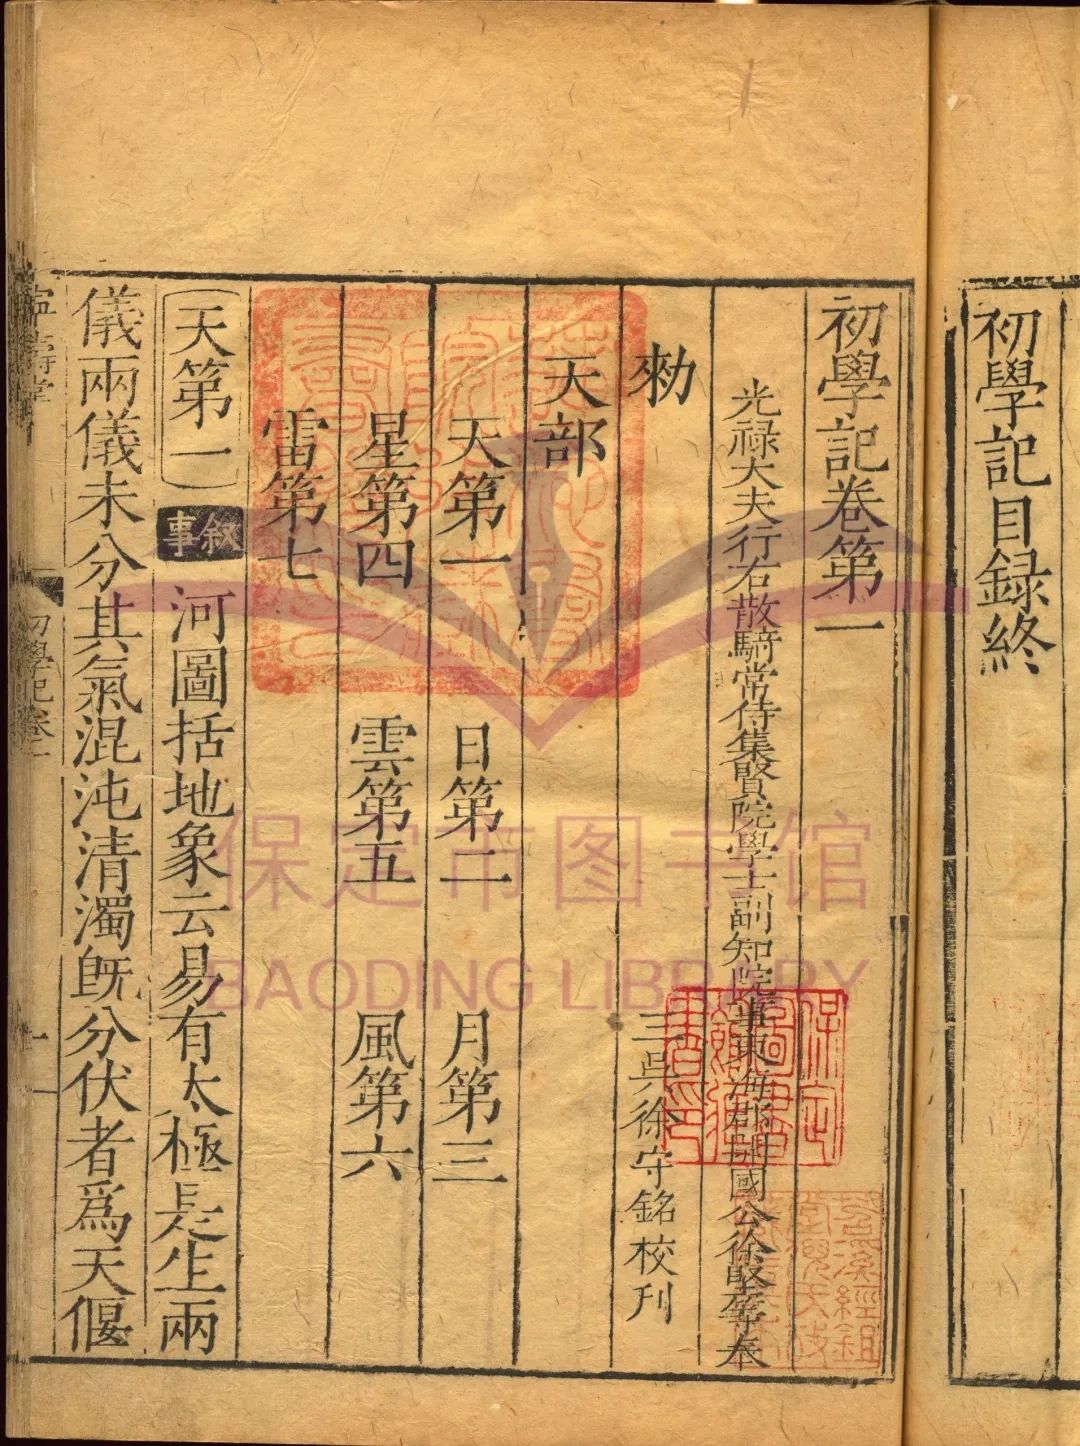 初學記目録終
初學記卷第一
光禄大夫行右散騎常侍集賢院學士副知院事東海郡開國公徐堅等奉
勑
三吳徐守銘校刊
天部
天第一 日第二 月第三
星第四 雲第五 風第六
雷第七
天第一 叙事 河圖括地象云易有太極是生兩
儀兩儀未分其氣混沌清濁旣分伏者爲天偃
寧壽堂
初學記卷一
一
保定市图书馆
BAODING LIBRARY